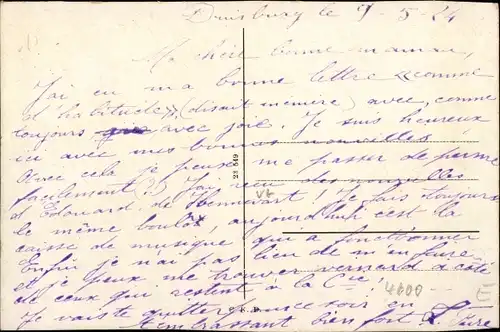 Duisburg le 9-5-24
Ma chère bonne maman,
J'ai eu ma bonne lettre « comme
d'habitude », (disait mémère) avec, comme
toujours avec joie. Je suis heureux
ici avec mes bonnes nouvelles
Avec cela je peux me passer de perme
facilement? J'ai reçu des nouvelles
d'Edouard, de Bennevart! Je fais toujours
le même boulot, aujourd'hui c'est la
caisse de musique qui a fonctionné
Enfin je n'ai pas lieu de m'en faire
et je peux me trouver à côté
de ceux qui restent à la Cie!
Je vais te quitter douce soir en
t'embrassant bien fort
22 849
4000